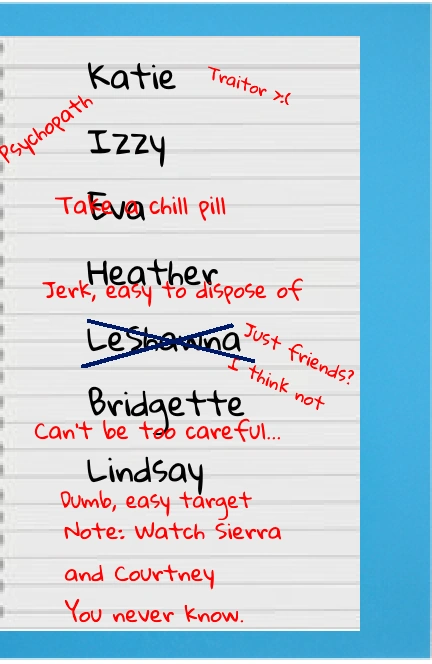 Katie
Traitor >:(
Psychopath
Izzy
Eva
Take a chill pill
Heather
Jerk, easy to dispose of
LeShawna
Just friends?
I think not
Bridgette
Can't be too careful...
Lindsay
Dumb, easy target
Note: Watch Sierra
and Courtney
You never know.